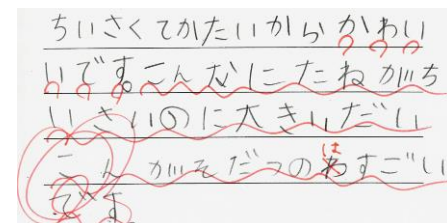 ちいさくてかたいからかわい
いです。こんなにたねがち
いさいのに大きいだい
こんがそだつのわすごい
は
です